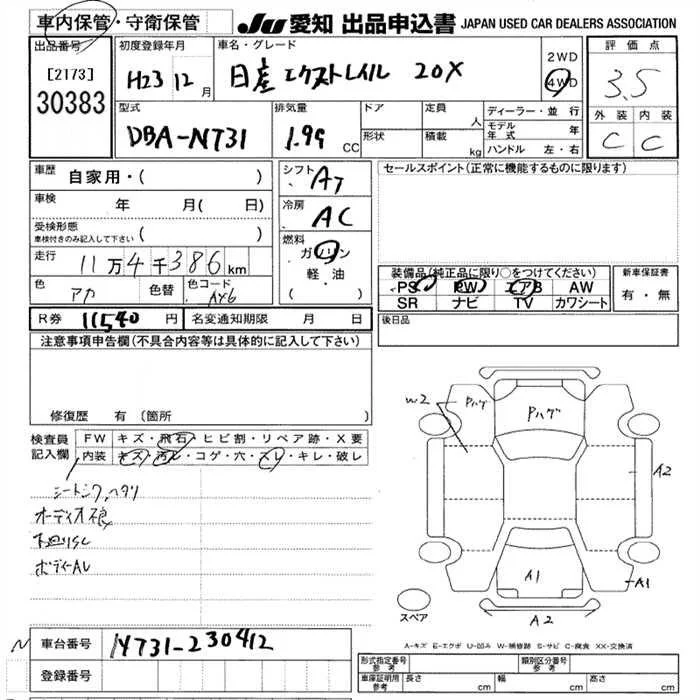 車内保管・守衛保管
JU 愛知 出品申込書 JAPAN USED CAR DEALERS ASSOCIATION
出品番号
[2173]
30383
初度登録年月
H23 12 月
車名・グレード
日産 エクストレイル 20X
2WD
4WD
評価点
3.5
外装 内装
C C
型式
DBA-NT31
排気量
1.99 CC
ドア
形状
定員 人
積載 kg
ディーラー・並行
モデル年式 年
ハンドル 左・右
車歴 自家用・( )
車検 年 月( 日)
受検形態
車検付きのみ記入して下さい ( )
走行 11万4千386km
色 アカ
色替
色コード AX6
シフト AT
冷房 AC
燃料
ガソリン
軽・油
( )
セールスポイント(正常に機能するものに限ります)
装備品(純正品に限り○をつけてください)
PS PW エアB AW
SR ナビ TV カワシート
新車保証書
有・無
R券 11540 円 名変通知期限 月 日
後日品
注意事項申告欄(不具合内容等は具体的に記入して下さい)
修復歴 有 (箇所 )
検査員記入欄
FW キズ・飛石・ヒビ割・リペア跡・X要
内装 キズ・汚レ・コゲ・穴・スレ・キレ・破レ
シートシワ、ヘタリ
オーディオ痕
下廻りSC
ボディーAU
W2
Pハゲ
Pハゲ
A2
A1
A1
A2
スペア
A-キズ E-エクボ U-凹み W-補修跡 S-サビ C-腐食 XX-交換済
N
車台番号 NT31-230412
登録番号
形式指定番号 参考
類別区分番号 参考
車庫証明用 参考 長さ cm 幅 cm 高さ cm